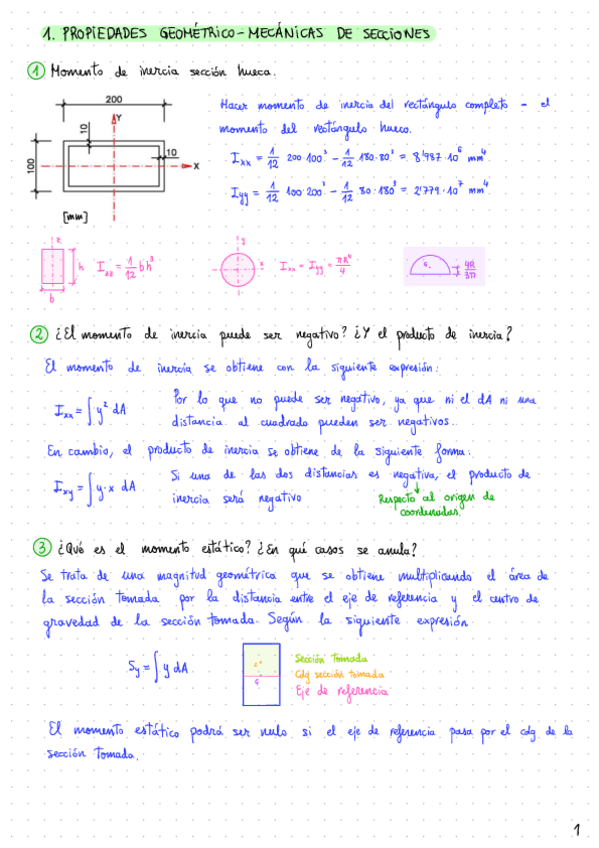 1. PROPIEDADES GEOMÉTRICO-MECÁNICAS DE SECCIONES
1 Momento de inercia sección hueca.
200
Y
10
10
X
100
[mm]
Hacer momento de inercia del rectángulo completo - el
momento del rectángulo hueco.
Ixx = 1/12 200·100³ - 1/12 180·80³ = 8'987·10⁶ mm⁴
Iyy = 1/12 100·200³ - 1/12 80·180³ = 2'779·10⁷ mm⁴
h
b
y
x
Ixx = Iyy = πR⁴/4
G
4R/3π
2 ¿El momento de inercia puede ser negativo? ¿Y el producto de inercia?
El momento de inercia se obtiene con la siguiente expresión:
Ixx = ∫ y² dA
Por lo que no puede ser negativo, ya que ni el dA ni una
distancia al cuadrado pueden ser negativos.
En cambio, el producto de inercia se obtiene de la siguiente forma:
Ixy = ∫ y·x dA
Si una de las dos distancias es negativa, el producto de
inercia será negativo
Respecto al origen de
coordenadas.
3 ¿Qué es el momento estático? ¿En qué casos se anula?
Se trata de una magnitud geométrica que se obtiene multiplicando el área de
la sección tomada por la distancia entre el eje de referencia y el centro de
gravedad de la sección tomada. Según la siguiente expresión
Sy = ∫ y dA
Sección tomada
Cdg sección tomada
Eje de referencia
G
El momento estático podrá ser nulo si el eje de referencia pasa por el cdg de la
sección tomada.
1